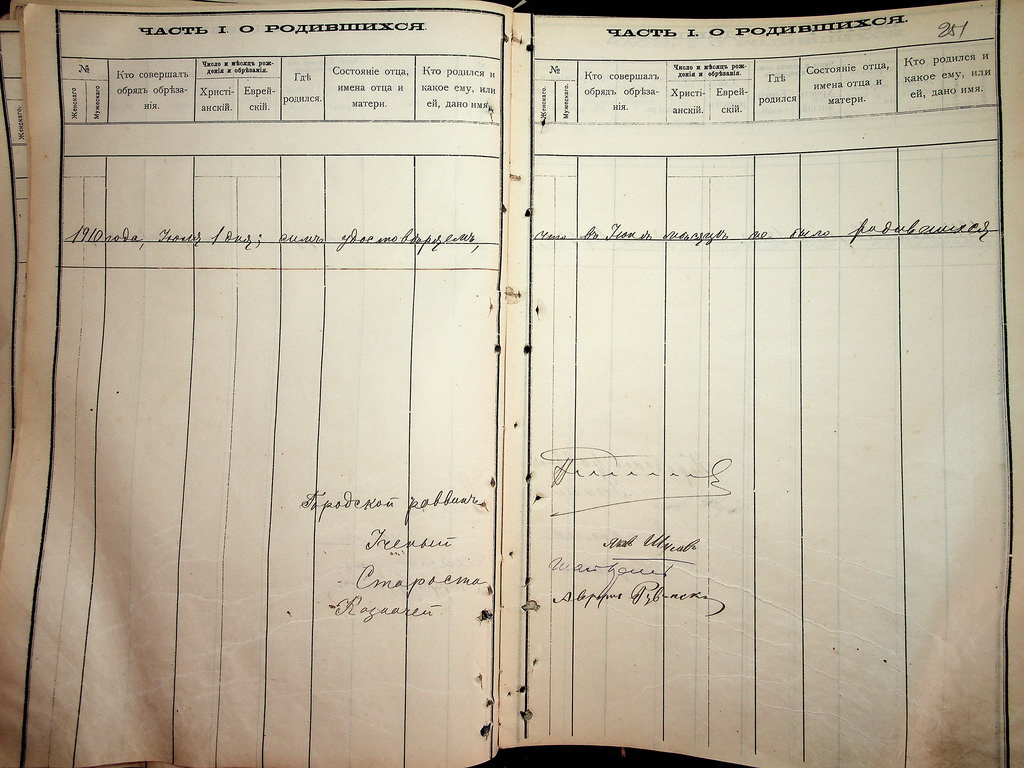 ЧАСТЬ I. О РОДИВШИХСЯ.
№
Женскаго.
Мужескаго.
Кто совершалъ
обрядъ обрѣза-
нія.
Число и мѣсяцъ рож-
денія и обрѣзанія.
Христі-
анскій.
Еврей-
скій.
Гдѣ
родился.
Состояніе отца,
имена отца и
матери.
Кто родился и
какое ему, или
ей, дано имя.
1910 года, Іюля 1 дня; симъ удостовѣряемъ,
Городской раввинъ
Ученый
Староста
Казначей
ЧАСТЬ I. О РОДИВШИХСЯ.
251
№
Женскаго.
Мужескаго.
Кто совершалъ
обрядъ обрѣза-
нія.
Число и мѣсяцъ рож-
денія и обрѣзанія.
Христі-
анскій.
Еврей-
скій.
Гдѣ
родился
Состояніе отца,
имена отца и
матери.
Кто родился и
какое ему, или
ей, дано имя.
что въ Іюнѣ мѣсяцѣ не было родившихся
Женскаго.